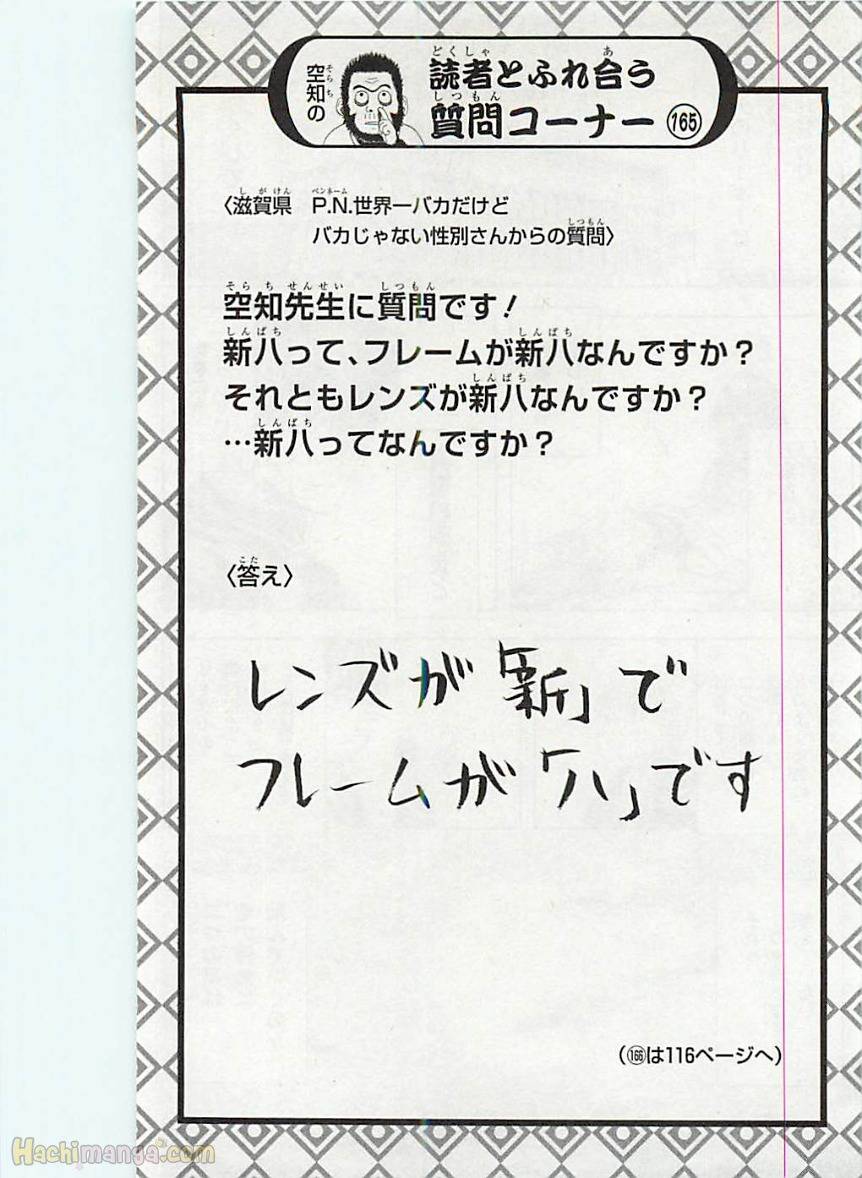 空知の
読者とふれ合う
質問コーナー 165
〈滋賀県 P.N.世界一バカだけど
バカじゃない性別さんからの質問〉
空知先生に質問です！
新八って、フレームが新八なんですか？
それともレンズが新八なんですか？
…新八ってなんですか？
〈答え〉
レンズが「新」で
フレームが「八」です
（166は116ページへ）
Hachimanga.com